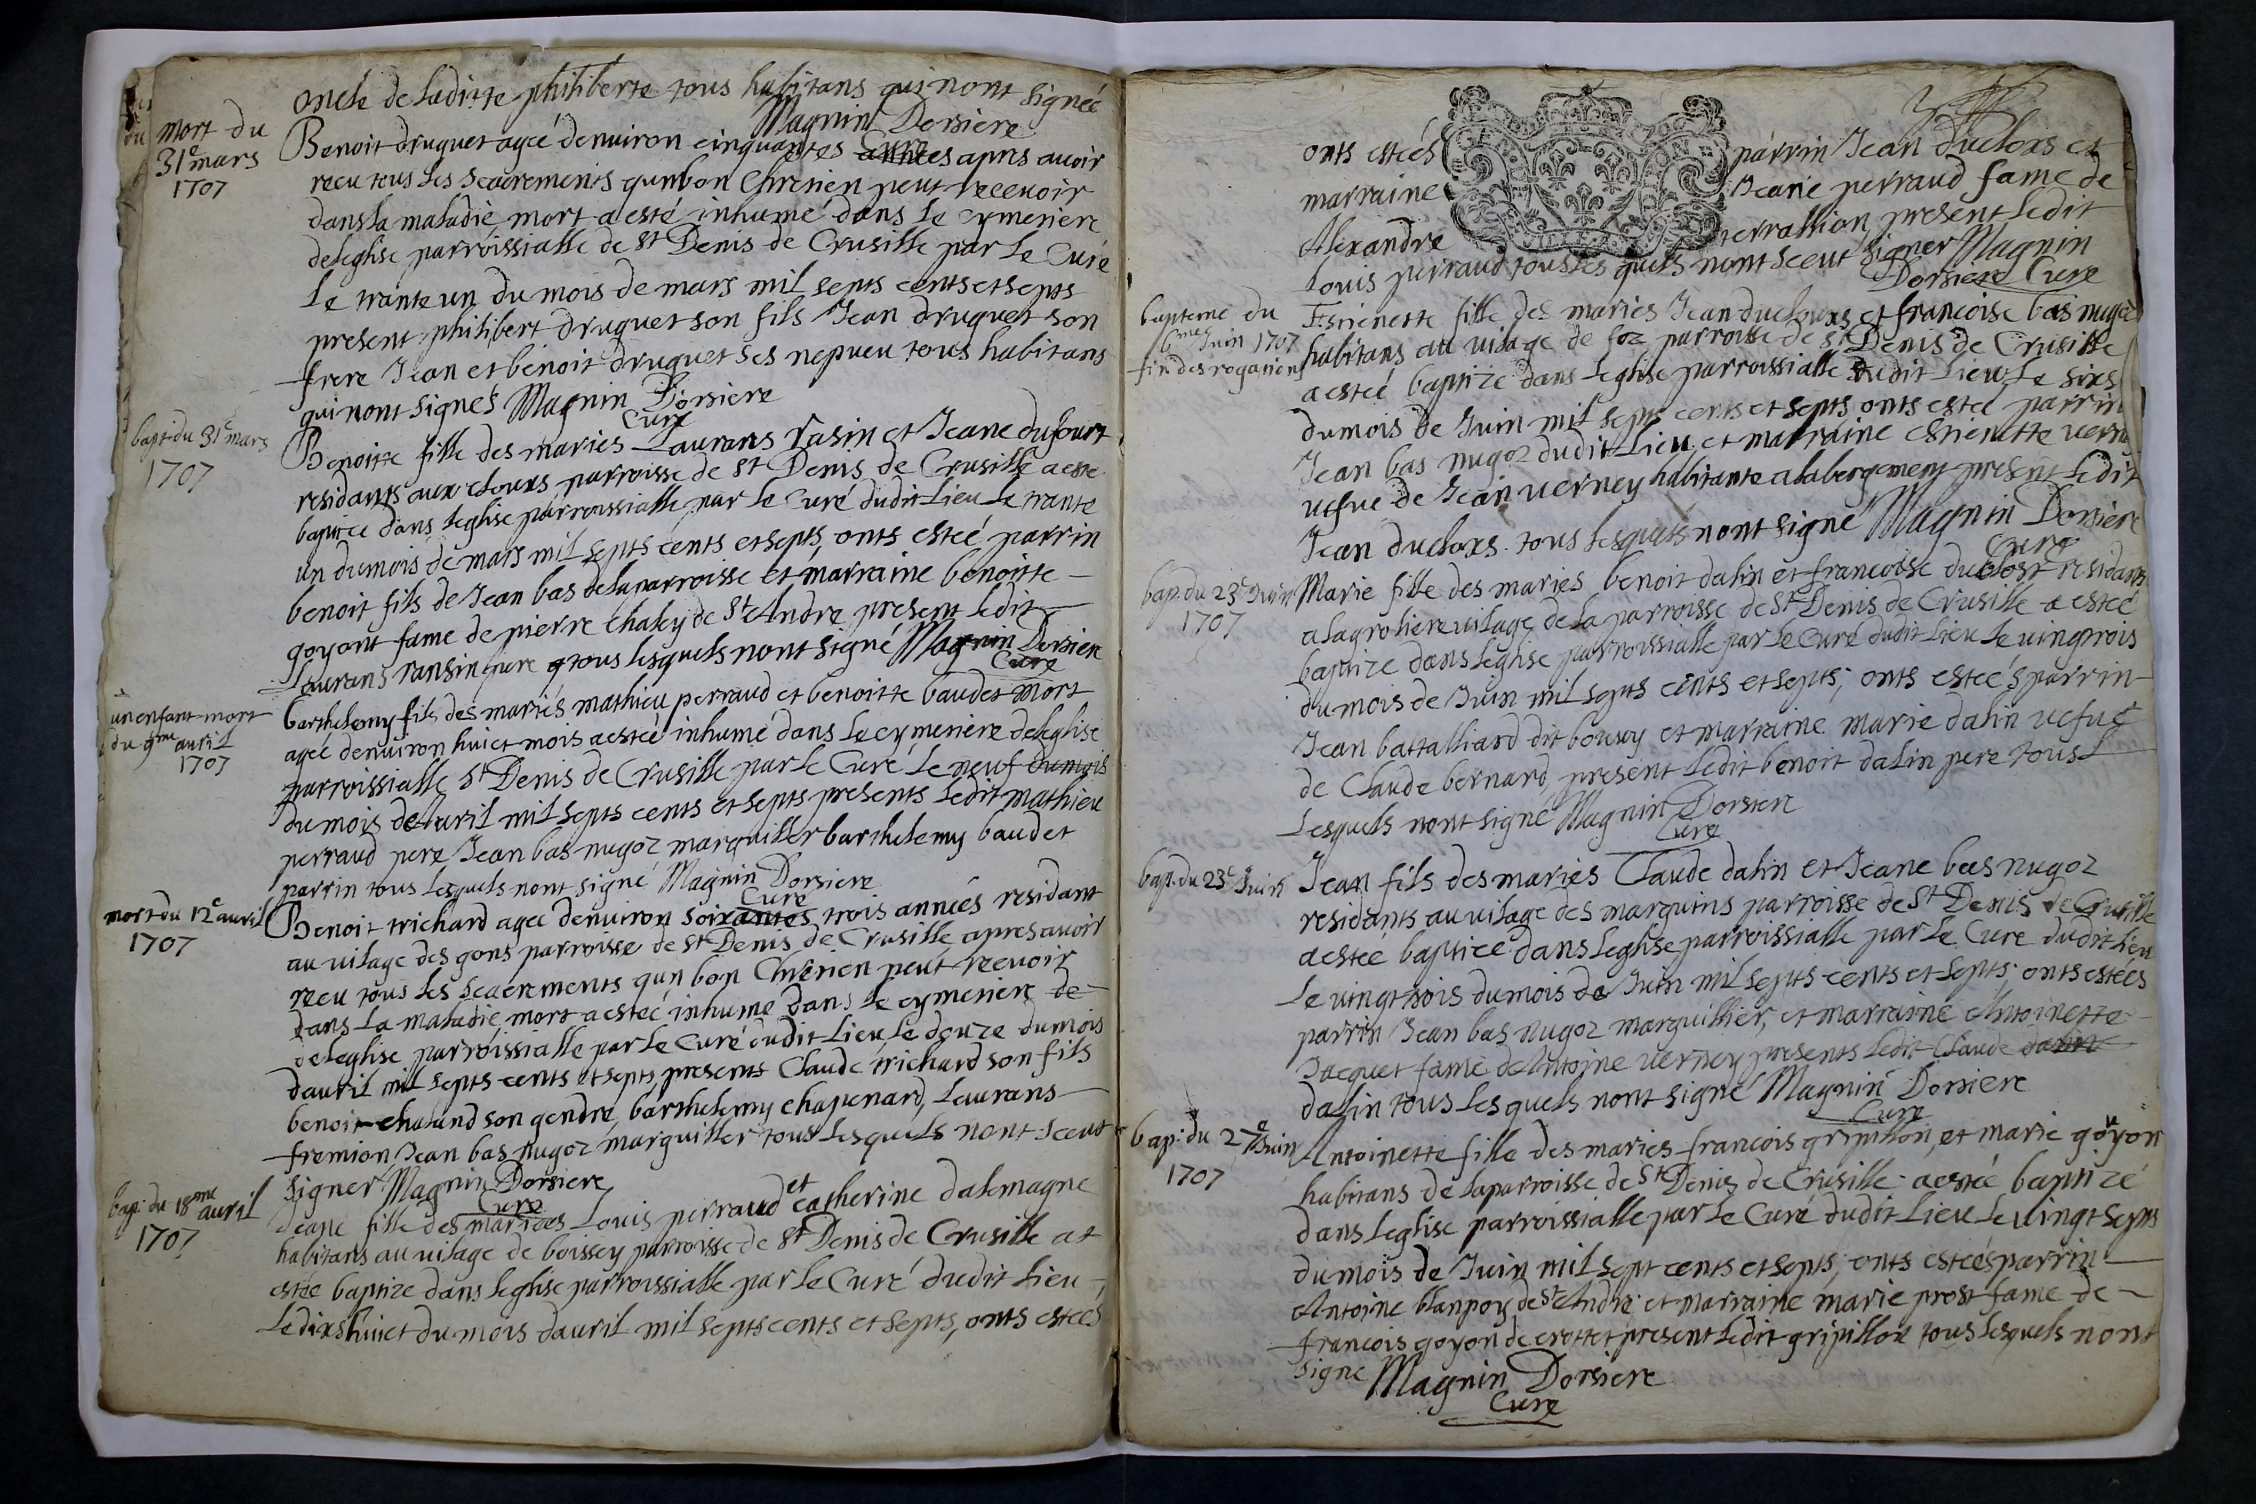 oncle de laditte philiberte tous habitans qui nont signéé
Magnin Dorsiere
Curé
mort du
31e mars
1707
Benoit druguet agéé denuiron cinquantes années apres auoir
receu tous les seacrements qunbon Chretien peut receuoir
dans la maladie, mort a esté inhumé dans le cymetiere
deleglise parroissialle de St Denis de Crusille par le Curé
le trante un du mois de mars mil septs cents et septs
present philibert druguet son fils Jean druguet son
frere Jean et benoit druguet ses nepueu tous habitans
qui nont signés Magnin Dorsiere
Curé
bapt. du 31e mars
1707
Benoitte fille des mariés Laurans rasin et Jeane dufourt
residants aux clouxs parroisse de St Denis de Crusille a este
baptiée dans leglise parroissialle par le Curé dudit lieu le trante
un dumois de mars mil septs cents et septs, onts estéé parrin
benoit fils de Jean bas delaparroisse et marraine benoitte
goyont fame de pierre chaley de St Andre present ledit
Laurans ransin pere tous lesquels nont signé Magnin Dorsiere
Curé
un enfant mort
du 9me auril
1707
barthelemy fils des mariés mathieu perraud et benoitte baudet mort
agéé denuiron huict mois a estéé inhumé dans le cymetiere deleglise
parroissialle St Denis de Crusille par le Curé le neuf dumois
dumois de auril mil septs cents et septs presents ledit mathieu
perraud pere Jean bas nugoz marguillier barthelemy baudet
parrin tous lesquels nont signé Magnin Dorsiere
Curé
mort du 12e auril
1707
Benoit trichard agéé denuiron soixantes trois annéés residant
au uilage des gons parroisse de St Denis de Crusille apres auoir
receu tous les seacrements qun bon Chretien peut receuoir
dans la maladie, mort a estéé inhumé dans le cymetiere de
deleglise parroissialle par le Curé dudit lieu le douze dumois
dauril mil septs cents et septs, presents Claude trichard son fils
benoit chaland son gendre, barthelemy chapenard, Laurans
fremion Jean bas nugoz marguillier tous lesquels nont sceut
signer Magnin Dorsiere
Curé
bap. du 18me auril
1707
Jeane fille des mariées Louis perraud et catherine dalemagne
habitans au uilage de boissey parroisse de St Denis de Crusille at
estéé baptize dans leglise parroissialle par le Curé dudit lieu
le dixs huict du mois dauril mil septs cents et septs, onts estéés
onts estéés parrin Jean ducloxs et
marraine Jeane perraud fame de
Alexandre present ledit
Louis perraud tous les quels nont sceut signer Magnin
Dorsiere Curé
bapteme du
6me Juin 1707
fin des rogations
Estienette fille des mariés Jean duclouxs et francoise bas nugoz
habitans au uilage de foz parroisse de St Denis de Crusille
a estéé baptize dans leglise parroissialle dudit lieu le sixs
dumois de Juin mil septs cents et septs onts estéé parrin
Jean bas nugoz dudit lieu et marraine estienette uerney
uefue de Jean uerney habitante a labergement present ledit
Jean ducloxs. tous lesquels nont signé Magnin Dorsiere
Curé
bap. du 23e Juin
1707
Marie fille des mariés benoit dalin et francoise duclost residants
a lagroliere uilage de la parroisse de St Denis de Crusille a estéé
baptize dans leglise parroissialle par le Curé dudit lieu le uingtrois
dumois de Juin mil septs cents et septs; onts estéés parrin
Jean battalliard dit bouuoy et marraine marie dalin uefue
de Claude bernard, present ledit benoit dalin pere tous
lesquels nont signé Magnin Dorsiere
Curé
bap. du 23e Juin
Jean fils des mariés Claude dalin et Jeane bas nugoz
residants au uilage des marguins parroisse de St Denis de Crusille
a estéé baptizéé dans leglise parroissialle par le Curé dudit lieu
le uingttrois dumois de Juin mil septs cents et septs; onts estéés
parrin Jean bas nugoz marguillier, et marraine Antoinette
Jacquet fame de Antoine uerney presents ledit Claude dalin
dalin tous les quels nont signé Magnin Dorsiere
Curé
bap. du 27e Juin
1707
Antoinette fille des mariés francois gripillon, et marie goyon
habitans de laparroisse de St Denis de Crusille a estéé baptizé
dans leglise parroissialle par le Curé dudit lieu le uingt septs
dumois de Juin mil sept cents et septs; onts estéés parrin
Antoine blanpoy de St Andre et marraine marie prost fame de
francois goyon de crottet present ledit gripillon tous lesquels nont
signe Magnin Dorsiere
Curé